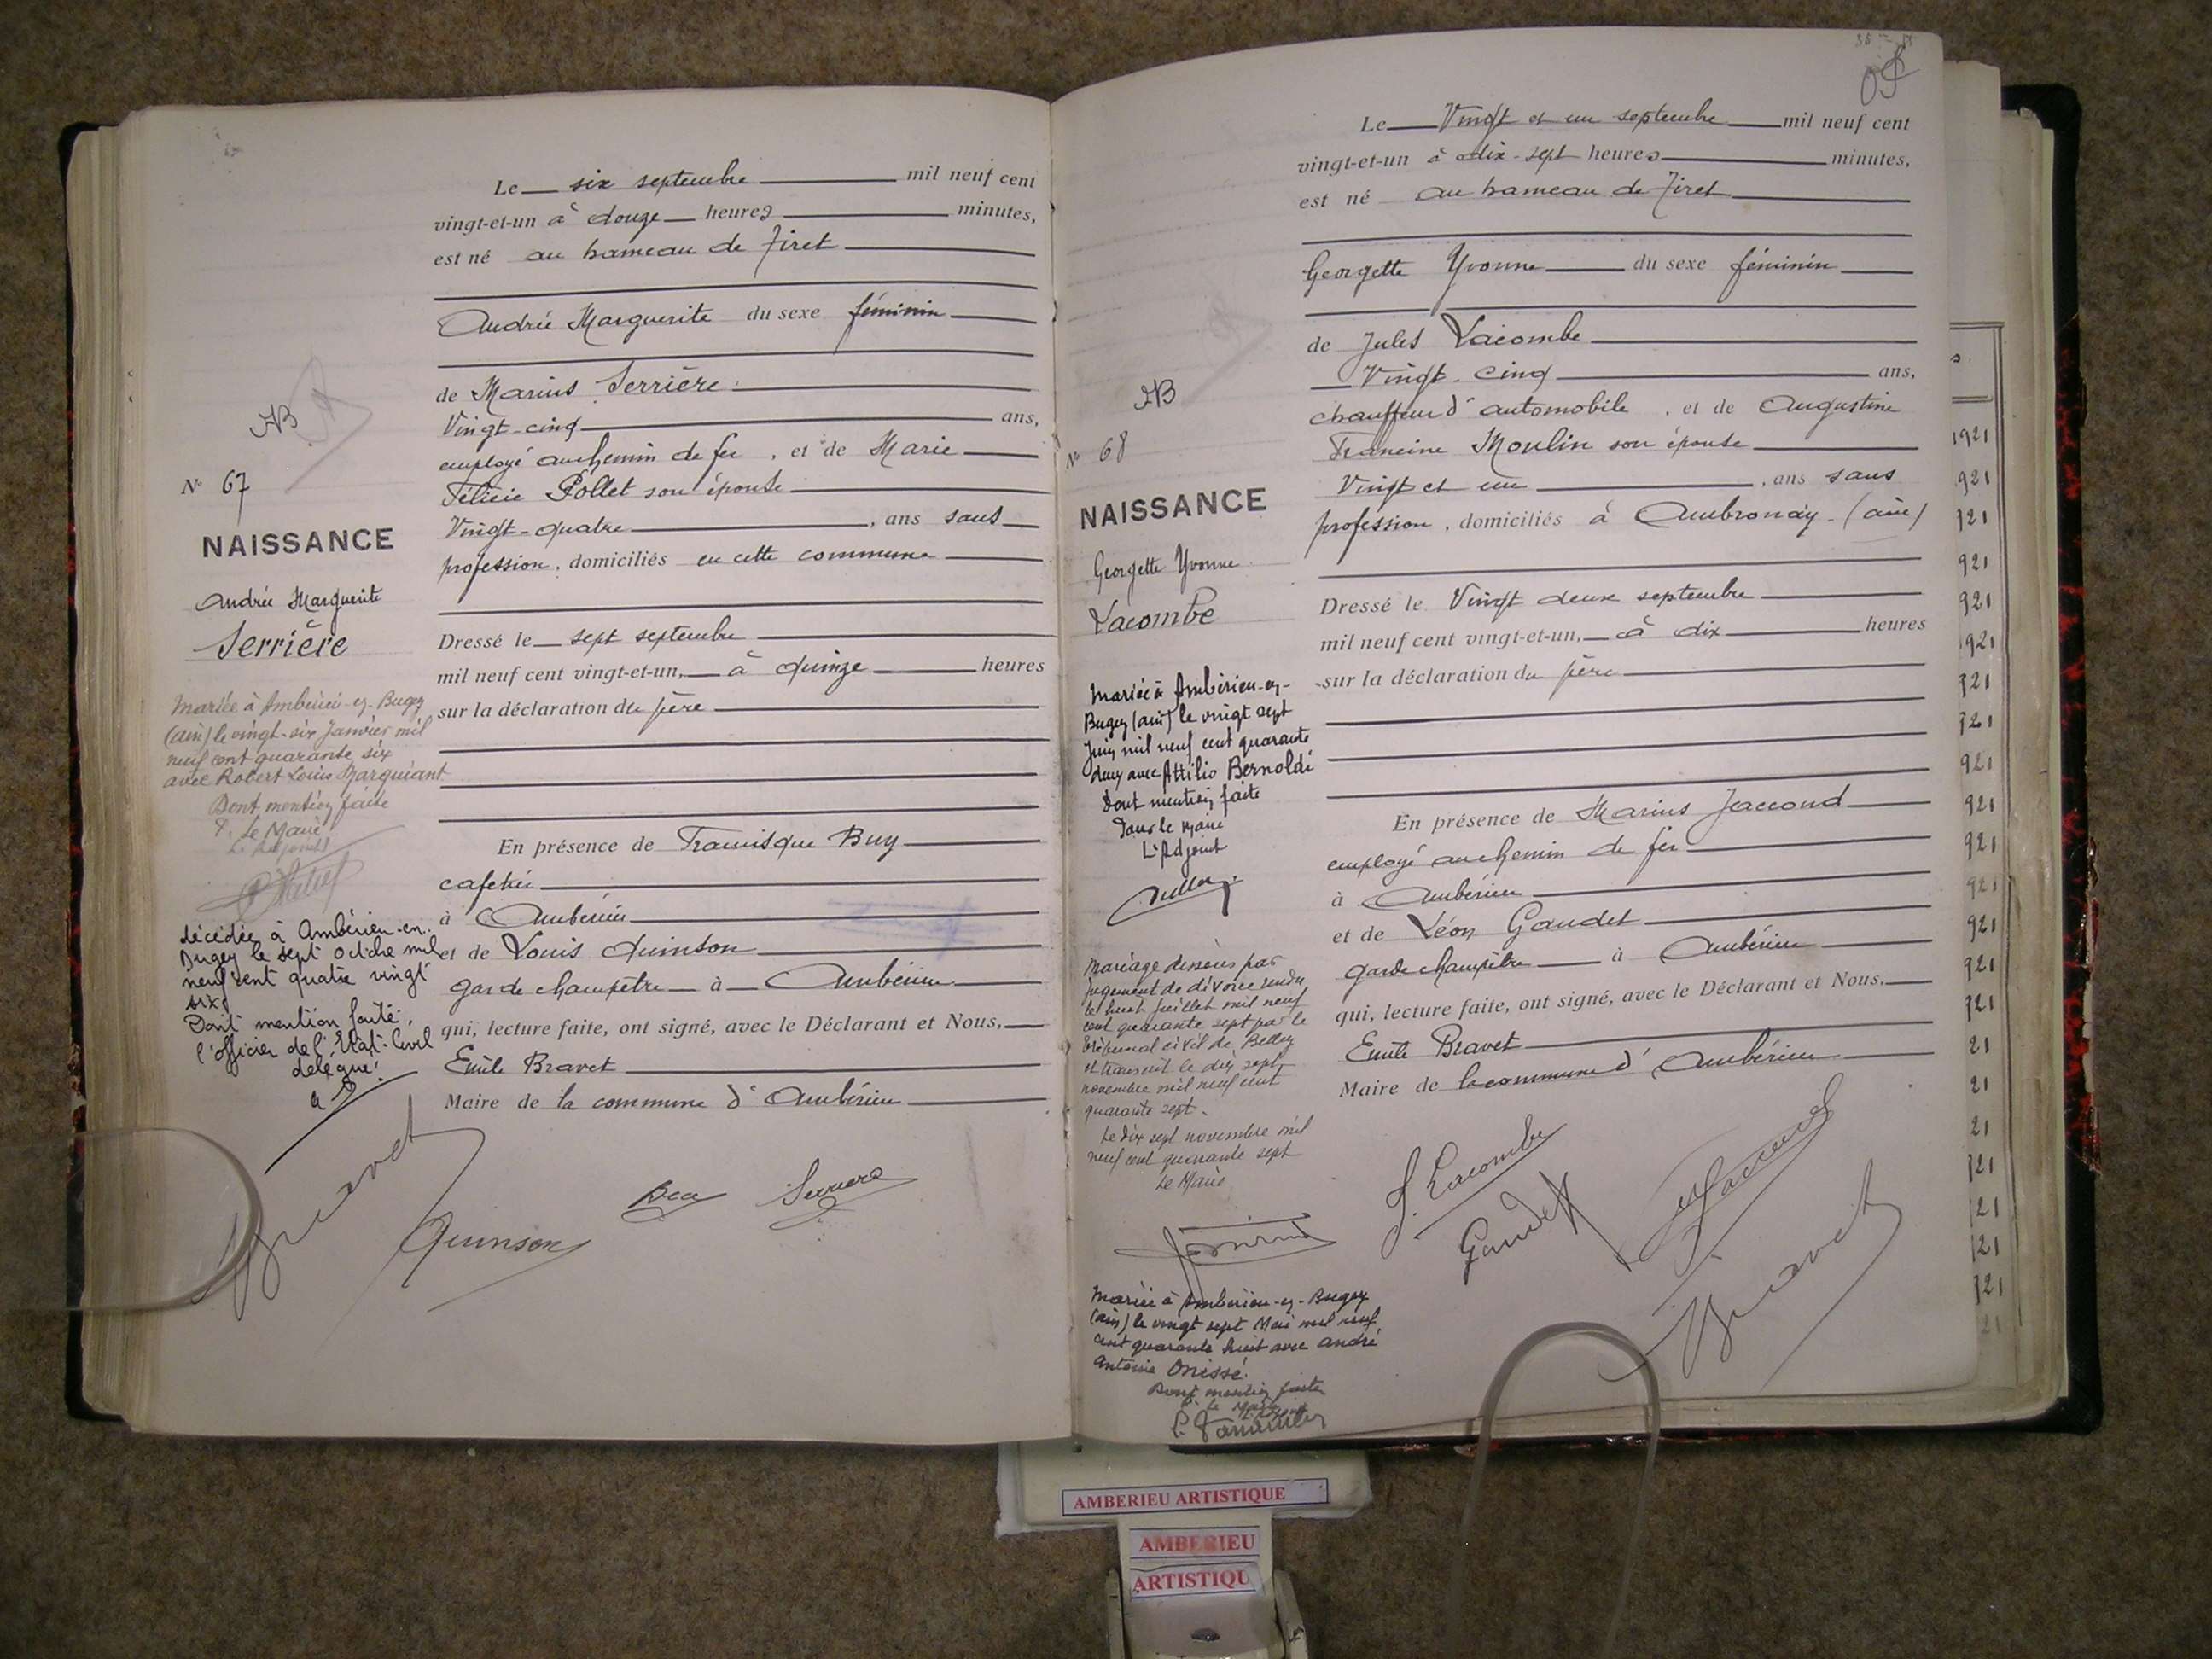 Le six septembre mil neuf cent
vingt-et-un à douze heures minutes,
est né au hameau de Tiret
Andrée Marguerite du sexe féminin
de Marius Serrière
Vingt-cinq ans,
employé au chemin de fer, et de Marie
Félicie Pollet son épouse
Vingt-quatre, ans sans
profession, domiciliés en cette commune
Dressé le sept septembre
mil neuf cent vingt-et-un, à quinze heures
sur la déclaration du père
En présence de Francisque Buy
cafetier
à Ambérieu
et de Louis Quinson
garde champêtre à Ambérieu
qui, lecture faite, ont signé, avec le Déclarant et Nous,
Emile Bravet
Maire de la commune d'Ambérieu
Bravet
Quinson
Serriere
AB
N° 67
NAISSANCE
Andrée Marguerite
Serrière
Mariée à Ambérieu-en-Bugey
(Ain) le vingt-six Janvier mil
neuf cent quarante six
avec Robert Louis Marquiant
Dont mention faite
P. Le Maire
L'Adjoint
décédée à Ambérieu-en-
Bugey le sept Octobre mil
neuf cent quatre vingt
six.
Dont mention faite,
l'officier de l'Etat-Civil
délégué.
Le Vingt et un septembre mil neuf cent
vingt-et-un à dix-sept heures minutes,
est né au hameau de Tiret
Georgette Yvonne du sexe féminin
de Jules Lacombe
Vingt-cinq ans,
chauffeur d'automobile, et de Augustine
Francine Moulin son épouse
Vingt et un, ans sans
profession, domiciliés à Ambronay - (Ain)
Dressé le Vingt deux septembre
mil neuf cent vingt-et-un, à dix heures
sur la déclaration du père
En présence de Marius Jaccond
employé au chemin de fer
à Ambérieu
et de Léon Gaudet
garde champêtre à Ambérieu
qui, lecture faite, ont signé, avec le Déclarant et Nous,
Emile Bravet
Maire de la commune d'Ambérieu
J. Lacombe
Gaudet
Bravet
AB
N° 68
NAISSANCE
Georgette Yvonne
Lacombe
Mariée à Ambérieu-en-
Bugey (Ain) le vingt sept
Juin mil neuf cent quarante
deux avec Attilio Bernoldi
Dont mention faite
Pour le Maire
L'Adjoint
Mariage dissous par
jugement de divorce rendu
le huit juillet mil neuf
cent quarante sept par le
tribunal civil de Belley
et transcrit le dix sept
novembre mil neuf cent
quarante sept.
Le dix sept novembre mil
neuf cent quarante sept
Le Maire
Mariée à Ambérieu-en-Bugey
(Ain) le vingt sept Mai mil neuf
cent quarante huit avec André
Antoine Onissé.
Dont mention faite
P. Le Maire
1921
921
921
921
921
1921
921
921
921
921
921
921
921
921
921
21
21
21
921
21
21
921
21
AMBERIEU ARTISTIQUE
AMBERIEU
ARTISTIQU